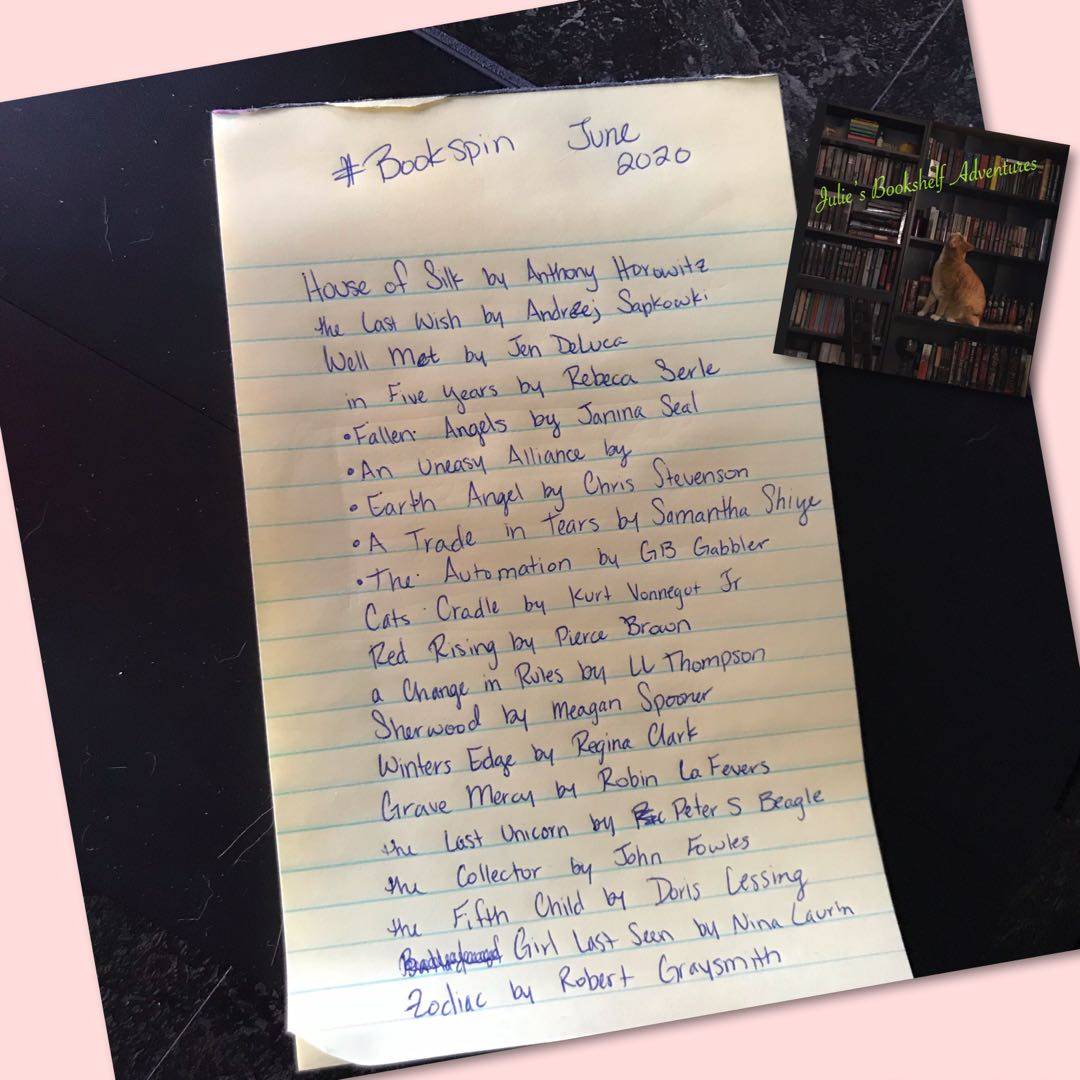 #Bookspin June 2020
Julie s Bookshelf Adventures
House of Silk by Anthony Horowitz
the Last Wish by Andrzej Sapkowki
Well Met by Jen DeLuca
in Five Years by Rebeca Serle
•Fallen Angels by Janina Seal
•An Uneasy Alliance by
•Earth Angel by Chris Stevenson
•A Trade in Tears by Samantha
•The Automation by GB Gabbler
Cats Cradle by Kurt Vonnegut Jr
Red Rising by Pierce Brown
a Change in Rules by LL Thompson
Sherwood by Meagan Spooner
Winters Edge by Regina Clark
Grave Mercy by Robin La Fevers
the Last Unicorn by Peter S Beagle
the Collector by John Fowles
the Fifth Child by Doris Lessing
Girl Last Seen by Nina Laurin
Zodiac by Robert Graysmith